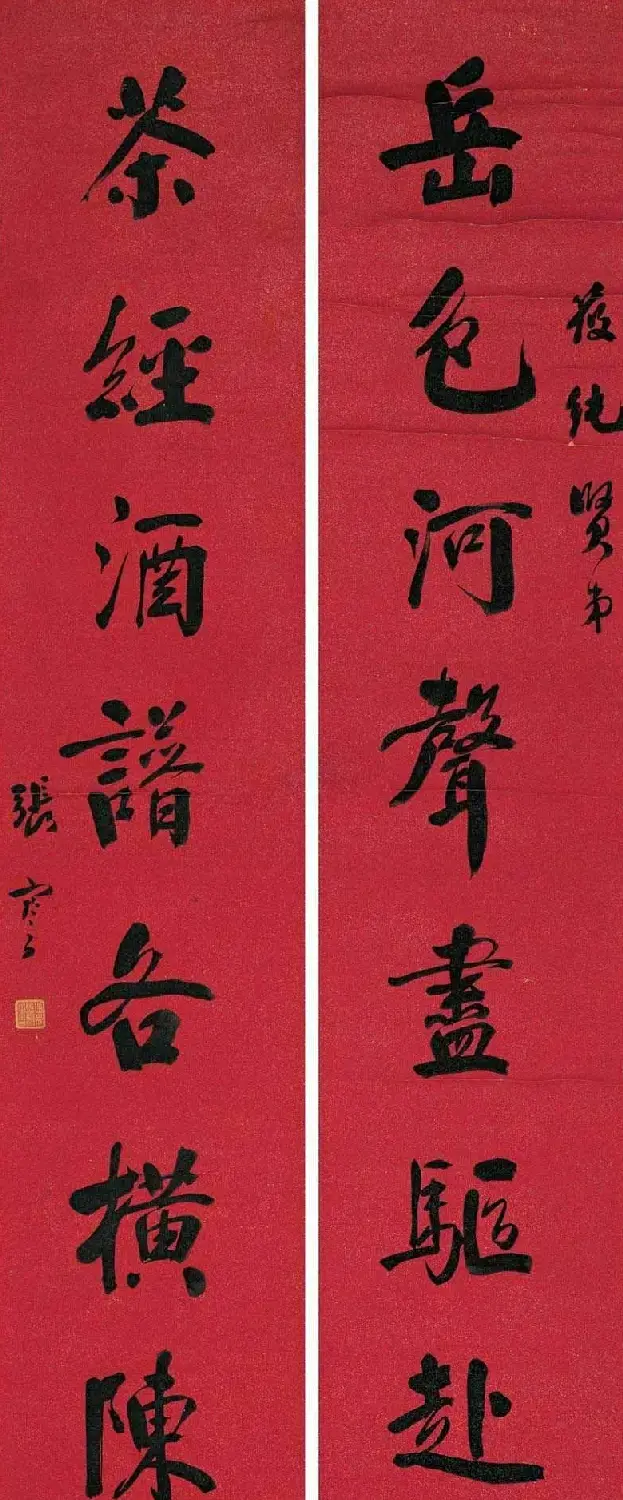 岳色河聲盡驅赴
筱純賢弟
茶經酒譜各橫陳
張謇